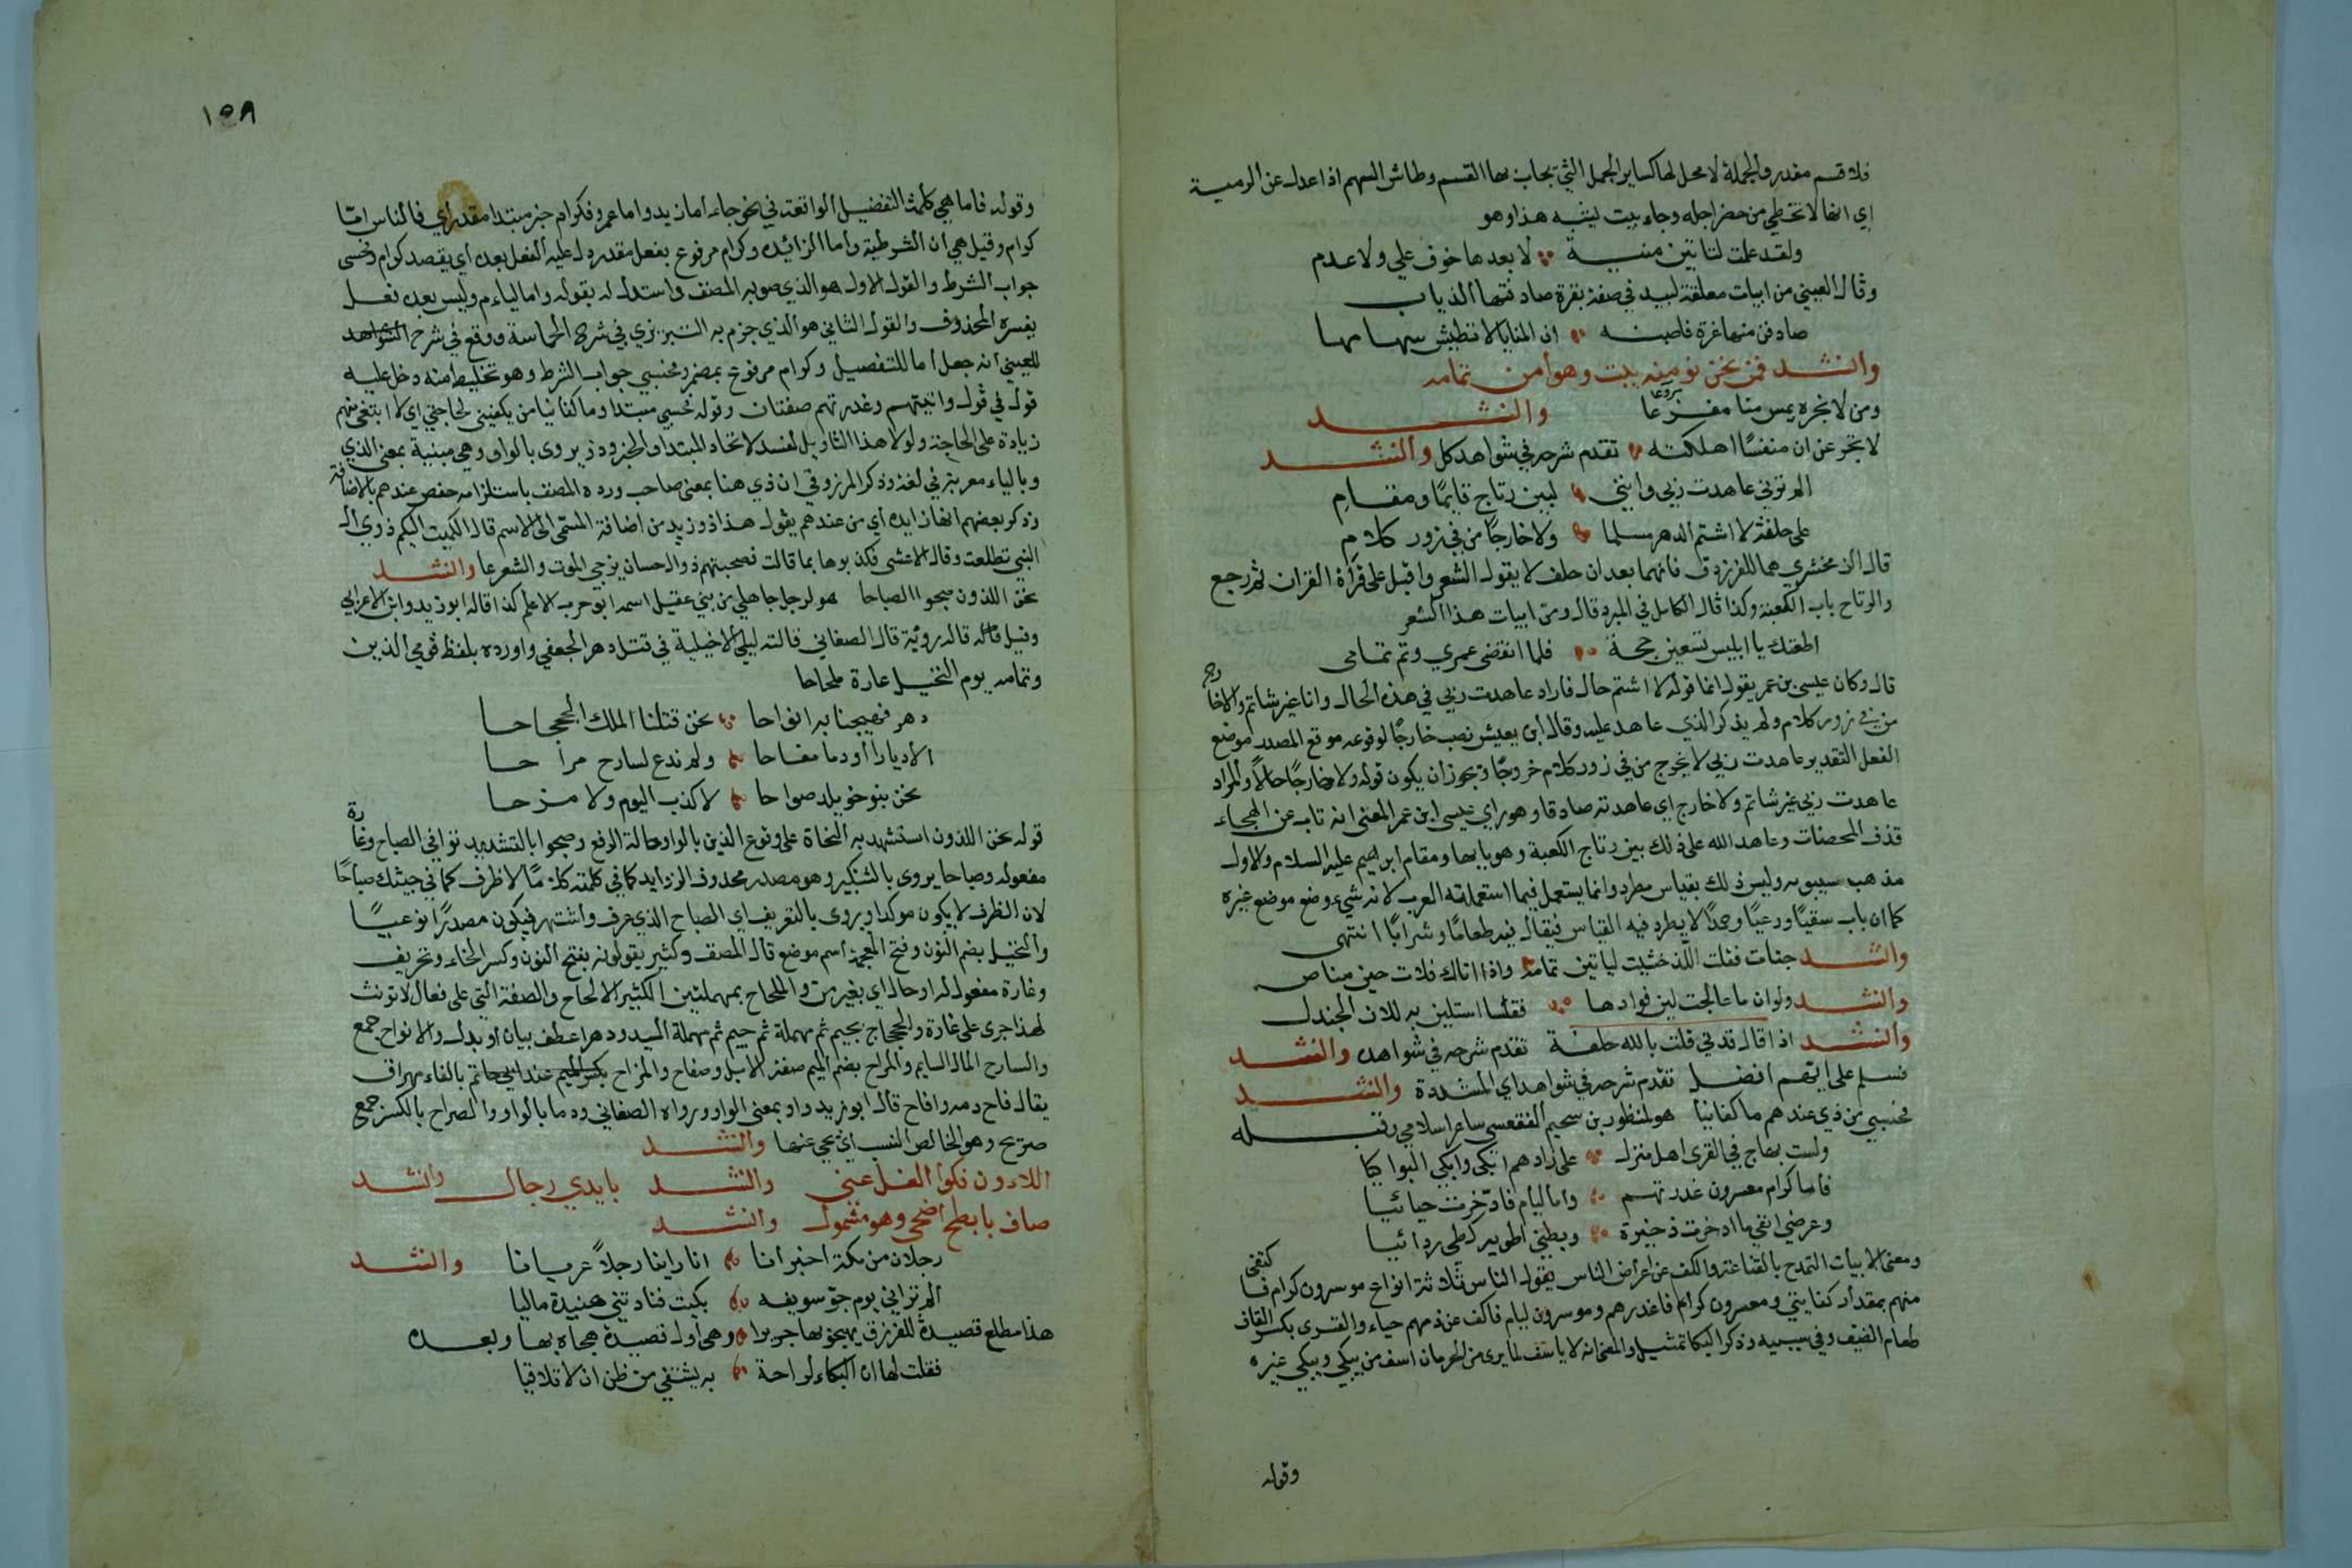 فلا قسم مقدر والجملة لا محل لها كساير الجمل التي يجاب بها القسم وطاش السهم اذا عدل عن الرمية
اي انها لا تخطي من حضر اجله وجاء بيت يشبه هذا وهو
ولقد علمت لتاتين منيــة لا بعدها خوف علي ولا عدم
وقال العيني من ابيات معلقة لبيد في صفة بقرة صادفتها الذياب
صادفن منها غرة فاصبنــه ان المنايا لا تطيش سهامها
وانشد فمن نحن نومنه يبت وهو امن تمامه
ومن لا نجره يمس منا مفزعا مروعا وانشد
لا تجزعن ان منفسا اهلكته تقدم شرحه في شواهد كل وانشد
الم ترني عاهدت ربي وانني لبين رتاج قايما ومقام
على حلفة لا اشتم الدهر مسلما ولا خارجا من في زور كلام
قال الزمخشري هما للفرزدق قالهما بعد ان حلف لا يقول الشعر واقبل على قراة القران ثم رجع
والرتاج باب الكعبة وكذا قال الكامل في المبرد قال ومن ابيات هذا الشعر
اطعتك يا ابليس تسعين حجة فلما انقضى عمري وتم تمامى
قال وكان عيسى بن عمر يقول انما قوله لا اشتم حال فاراد عاهدت ربي في هذه الحال وانا غير شاتم ولا خارج
من في زور كلام ولم يذكر الذي عاهد عليه وقال ابن يعيش نصب خارجا لوقوعه موقع المصدر موضع
الفعل التقدير عاهدت ربي لا يخرج من في زور كلام خروجا ويجوز ان يكون قوله ولا خارجا حالا والمراد
عاهدت ربي غير شاتم ولا خارج اي عاهدته صادقا وهو راي عيسى ابن عمر المعنى انه تاب عن الهجاء
قذف المحصنات وعاهد الله على ذلك بين رتاج الكعبة وهو بابها ومقام ابرهيم عليه السلام والاول
مذهب سيبويه وليس ذلك بقياس مطرد وانما يستعمل فيما استعملته العرب لانه شيء وضع موضع غيره
كما ان باب سقيا ورعيا وحمدا لا يطرد فيه القياس فيقال فيه طعاما وشرابا انتهى
وانشد جنات فقلت اللذ خشيت لياتين تمامه واذا اتاك فلات حين مناص
وانشد ولو ان ما عالجت لين فوادها فقسا استلين به للان الجندل
وانشد اذا قال قدني قلت بالله حلفة تقدم شرحه في شواهد وانشد
فسلم على ايهم افضل تقدم شرحه في شواهد اي المشددة وانشد
فحسبي من ذي عندهم ما كفانيا هو لمنظور بن سحيم الفقعسي شاعر اسلامي وقبله
ولست بهاج في القرى اهل منزل على زادهم ابكى وابكي البواكيا
فاما كرام معسرون عذرتهم واما ليام فادخرت حيائيا
وعرضي ابقى ما ادخرت ذخيرة وبطني اطويه كطي ردائيا
ومعنى الابيات التمدح بالقناعة والكف عن اعراض الناس يقول الناس ثلاثة انواع موسرون كرام فاكتفى
منهم بمقدار كفايتي ومعسرون كرام فاعذرهم وموسرون ليام فاكف عن ذمهم حياء والقرى بكسر القاف
طعام الضيف وفي سببيه وذكر البكا تمثيل والمعنى انه لا ياسف لما يرى من الحرمان اسف من يبكي ويبكي غيره
وقوله
١٥٨
وقوله فاما هي كلمة التفضيل الواقعة في نحو جاء اما زيد واما عمرو فكرام خبر مبتدا مقدر اي فالناس اما
كرام وقيل هي ان الشرطية واما الزائدة وكرام مرفوع بفعل مقدر دل عليه الفعل بعده اي يقصد كرام وحسبي
جواب الشرط والقول الاول هو الذي صوبه المصنف واستدل له بقوله واما ليام وليس بعده فعل
يفسره المحذوف والقول الثاني هو الذي جزم به التبريزي في شرح الحماسة ووقع في شرح الشواهد
للعيني انه جعل اما للتفصيل وكرام مرفوع بمضمر وحسبي جواب الشرط وهو تخليط منه دخل عليه
قول في قول واتيتهم وعذرتهم صفتان وقوله فحسبي مبتدا وما كفانيا من يكفيني لحاجتي اي لا ابتغي منهم
زيادة على الحاجة ولولا هذا التاويل لفسد لاتحاد المبتدا والخبر وذي يروى بالواو وهي مبنية بمعنى الذي
وبالياء معربة في لغة وذكر المرزوقي ان ذي هنا بمعنى صاحب ورده المصنف باستلزامه خفض عندهم بالاضافة
وذكر بعضهم انها زايدة اي من عندهم يقول هذا ذو زيد من اضافة المسمى الى الاسم قال الكميت اليكم ذوي ال
النبي تطلعت وقال الاعشى فكذبوها بما قالت فصحبتهم ذو ال حسان يزجي الموت والشرعا وانشد
نحن اللذون صبحوا الصباحا هو لرجل جاهلي من بني عقيل اسمه ابو حرب الاعلم كذا قاله ابو زيد وابن الاعرابي
وقيل قاله رؤبة قال الصغاني قالته ليلى الاخيلية في قتل دهر الجعفي واورده بلفظ قومي الذين
وتمامه يوم النخيل غارة ملحاحا
دهر فهيجنا به انواحا نحن قتلنا الملك الجحجاحا
الا ديارا او دما مفاحا ولم ندع لسارح مراحا
نحن بنو خويلد صراحا لا كذب اليوم ولا مزحا
قوله نحن اللذون استشهد به النحاة على وقوع الذين بالواو حالة الرفع وصبحوا بالتشديد توافي الصباح وغارة
مفعوله وصباحا يروى بالتنكير وهو مصدر محذوف الزوايد كما في كلمته كلاما لا ظرف كما في جيئتك صباحا
لان الظرف لا يكون موكدا ويروى بالتعريف اي الصباح الذي عرف واشتهر فيكون مصدرا نوعيا
والنخيل بضم النون وفتح المعجمة اسم موضع قال المصنف وكثير يقولونه بفتح النون وكسر الخاء وتحريف
وغارة مفعول له او حال اي بغيرين والملحاح بمهملتين الكثير الالحاح والصفة التي على فعال لا تونث
لهذا جرى على غارة والجحجاح بجيم ثم مهملة ثم جيم ثم مهملة السيد ودهرا عطف بيان او بدل والانواح جمع
والسارح المال السايم والمراح بضم الميم صفة الابل وصفاح والمزاح بكسر الميم عند ابي حاتم بالفاء مهراق
يقال فاح دمه وافاح قال ابو زيد واو بمعنى الواو ورواه الصغاني ودما بالواو والصراح بالكسر جمع
صريح وهو الخالص النسب اي يحي عنها وانشد
اللاءون فكوا الغل عني وانشد بايدي رجال وانشد
صاف بابطح اضحى وهو مشمول وانشد
رجلان من مكة اخبرانا انا راينا رجلا عريانا وانشد
الم تراني يوم جو سويقه بكيت فنادتني هنيدة ماليا
هذا مطلع قصيدة للفرزدق يهجو بها جريرا وهي اول قصيدة هجاه بها وبعده
فقلت لها ان البكاء لراحة به يشتفي من ظن ان لا تلاقيا